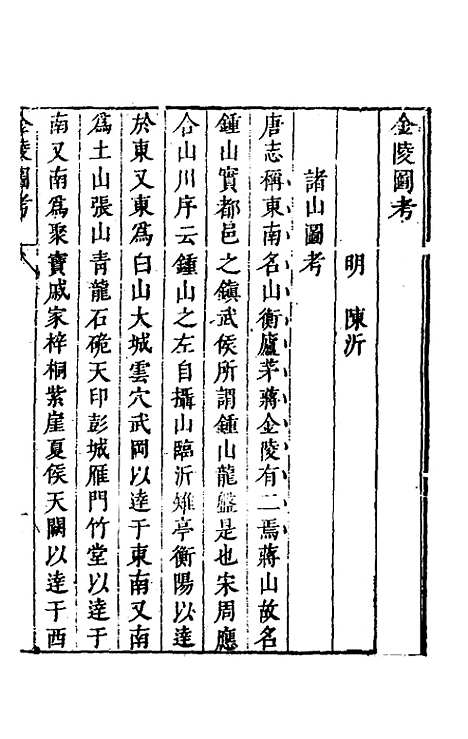 金陵圖考
明 陳沂
諸山圖考
唐志稱東南名山衡廬茅蔣金陵有二焉蔣山故名
鍾山實都邑之鎮武侯所謂鍾山龍盤是也宋周應
合山川序云鍾山之左自攝山臨沂雉亭衡陽以達
於東又東為白山大城雲穴武岡以達于東南又南
為土山張山青龍石硊天印彭城雁門竹堂以達于
南又南為聚寶戚家梓桐紫崖夏侯天闕以達于西
金陵圖考